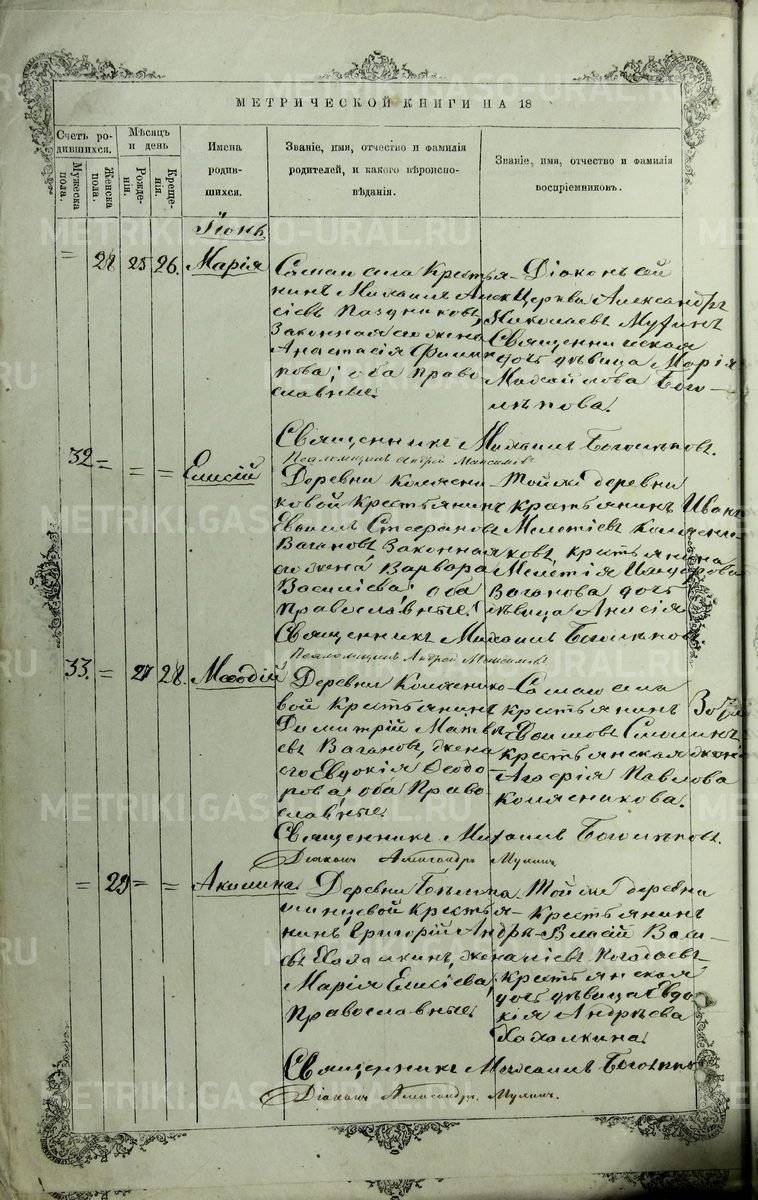 МЕТРИЧЕСКОЙ КНИГИ НА 18
Счетъ ро-
дившихся.
Мужеска
пола.
Женска
пола.
Мѣсяцъ
и день
Рожде-
нія.
Креще-
нія.
Имена
родив-
шихся.
Званіе, имя, отчество и фамилія
родителей, и какого вѣроиспо-
вѣданія.
Званіе, имя, отчество и фамилія
воспріемниковъ.
Іюнь.
= 28 25 26. Марія
крестья-
нинъ Михаилъ Алек
сіевъ Паздниковъ,
законная его жена
Анастасія Филип
пова; оба право
славные.
Діаконъ сей
Церкви Александръ
Николаевъ Мулинъ
Священническая
дочь дѣвица Марія
Михайлова Бого-
лѣпова.
Священникъ Михаилъ Боголѣповъ.
Псаломщикъ Андрей Максимовъ
32 = = = Елисій
Деревни Колясни-
ковой крестьянинъ
Стефановъ
Вагановъ законная
его жена Варвара
Василіева; оба
православные.
Той же деревни
крестьянинъ Иванъ
Мелетіевъ Колясни-
ковъ, крестьянина
Мелетія
Ваганова дочь
дѣвица Анисія
Священникъ Михаилъ Боголѣповъ.
Псаломщикъ Андрей Максимовъ
33. = 27 28. Меѳодій
Деревни Коляснико-
вой крестьянинъ
Димитрій Матвѣ
евъ Вагановъ, жена
его Евдокія Ѳеодо-
рова; оба Право
славные.
крестьянинъ
крестьянская жена
Павлова
Колясникова.
Священникъ Михаилъ Боголѣповъ.
Діаконъ Александръ Мулинъ
= 29 = = Акилина
Деревни
крестья-
нинъ Григорій Андрѣ-
евъ Халалкинъ, жена
Марія Елисіева,
Православные.
Той же деревни
крестьянинъ
Власій Васи-
ліевъ
крестьянская
дочь дѣвица Евдо-
кія Андрѣева
Халалкина.
Священникъ Михаилъ Боголѣповъ
Діаконъ Александръ Мулинъ.
METRIKI.GASO-URAL.RU